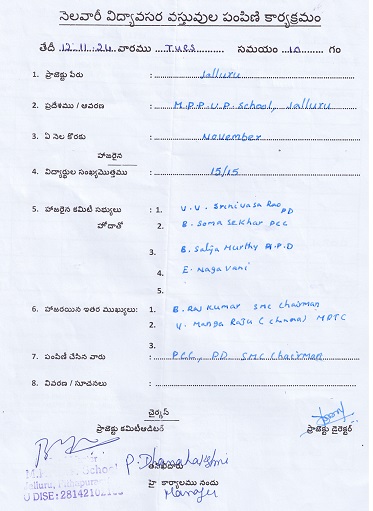 నెలవారీ విద్యావసర వస్తువుల పంపిణి కార్యక్రమం
తేదీ 12.11.24 వారము ... TUES ... సమయం ..10.. గం
1. ప్రాజెక్టు పేరు : Jalluru
2. ప్రదేశము / ఆవరణ : M.P.P.U.P. School, Jalluru
3. ఏ నెల కొరకు : November
హాజరైన
4. విద్యార్థుల సంఖ్యమొత్తము : 15/15
5. హాజరైన కమిటీ సభ్యులు : 1. V.V. Srinivasa Rao PD
హోదాతో 2. B. Soma Sekhar PCC
3. B. Satja Murthy A.P.D
4. E. Naga Vani
5.
6. హాజరయిన ఇతర ముఖ్యులు: 1. B. Raj Kumar SMC Chairman
2. V. Manga Raju (Channa) MPTC
3.
7. పంపిణీ చేసిన వారు : PCC, PD SMC Chairman
8. వివరణ / సూచనలు :
చైర్మన్
ప్రాజెక్టు కమిటీఆడిటర్ ప్రాజెక్టు డైరెక్టర్
P. Dhanalakshmi
హై కార్యాలము నందు
Manager
School
Jalluru,
U DISE: 28142102